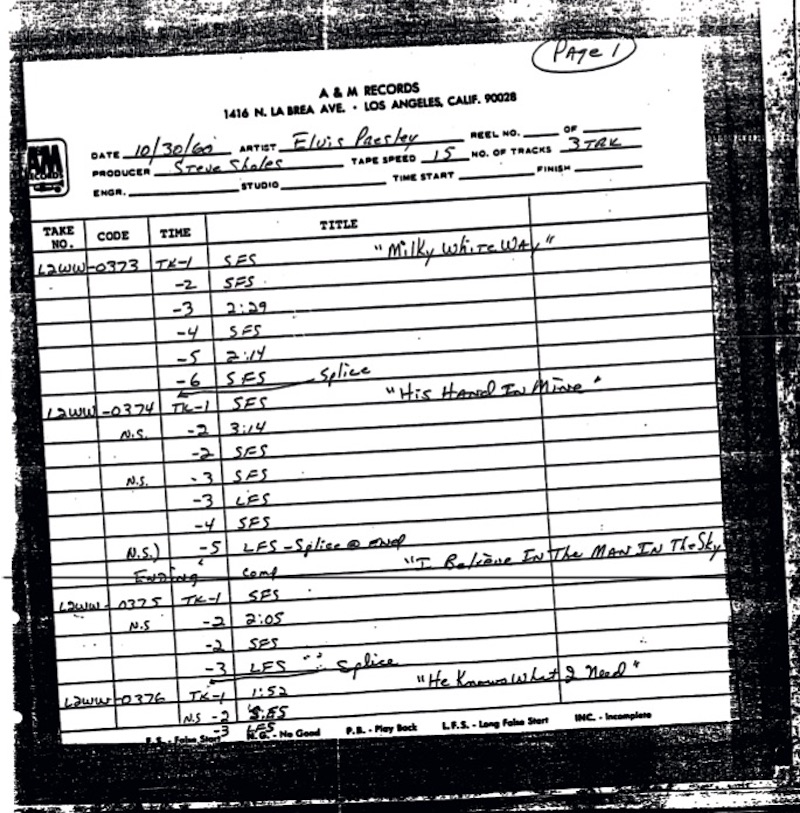 PAge 1
A & M RECORDS
1416 N. LA BREA AVE. • LOS ANGELES, CALIF. 90028
A&M RECORDS
DATE 10/30/60 ARTIST Elvis Presley REEL NO. OF
PRODUCER Steve Sholes TAPE SPEED 15 NO. OF TRACKS 3 TRK
ENGR. STUDIO TIME START FINISH
TAKE NO. CODE TIME TITLE
L2WW-0373 TK-1 SFS "Milky White WAy"
-2 SFS
-3 2:29
-4 SFS
-5 2:14
-6 SFS Splice
L2WW-0374 TK-1 SFS "His HAnd In Mine"
N.S. -2 3:14
-2 SFS
N.S. -3 SFS
-3 LFS
-4 SFS
N.S.) -5 LFS-Splice @ end
Ending comp "I Believe In The MAN IN The Sky
L2WW-0375 TK-1 SFS
N.S -2 2:05
-2 SFS
-3 LFS Splice
L2WW-0376 TK-1 1:52 "He Knows What I Need"
N.S -2 SFS
-3 LFS
F.S. - False Start N.G. - No Good P.B. - Play Back L.F.S. - Long False Start INC. - Incomplete